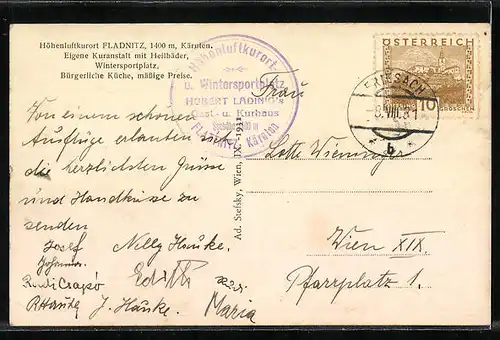 Höhenluftkurort FLADNITZ, 1400 m, Kärnten.
Eigene Kuranstalt mit Heilbäder,
Wintersportplatz.
Bürgerliche Küche, mäßige Preise.
Höhenluftkurort
u. Wintersportplatz
HUBERT LADINIG's
Gast- u. Kurhaus
FLADNITZ, Kärnten
ÖSTERREICH
10
FRIESACH
b
Von einem schönen
Ausfluge erlauben wir
die herzlichsten Grüsse
und Handküsse zu
senden
Josef
Johanna
Rudi Csapó
Nelly Hauke.
Edith
J. Hauke.
Maria
Ad. Stefsky, Wien,
Frau
Lotte
Wien XIX.
Pfarrplatz 1.